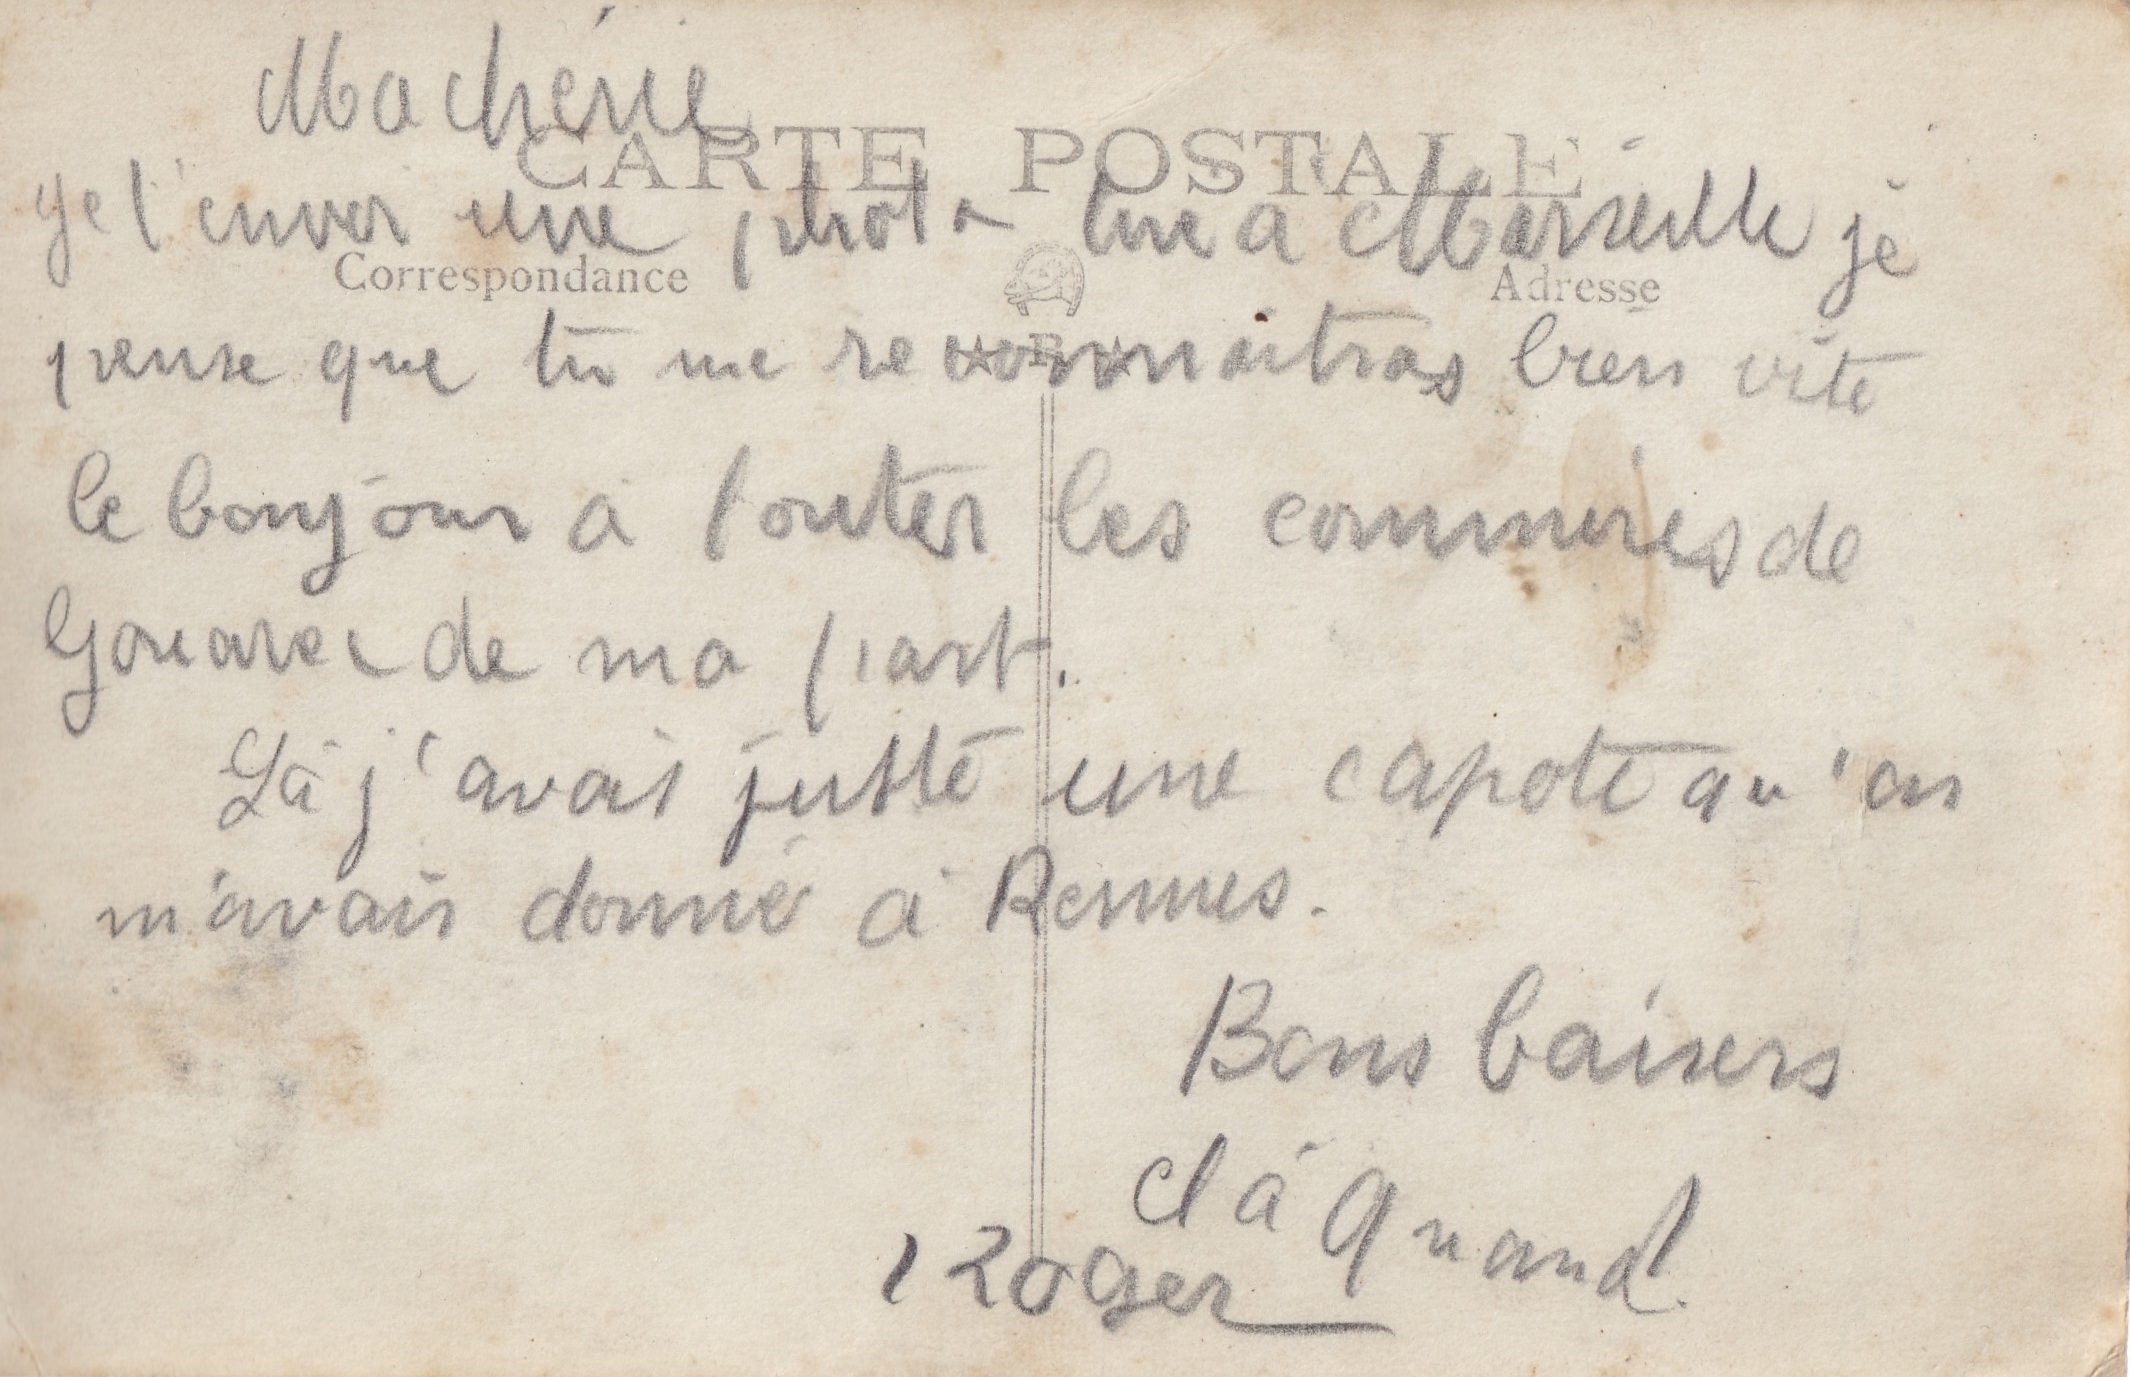 Ma chérie
CARTE POSTALE
Je t'envoi une photo tiré à Marseille je
Correspondance
Adresse
R
pense que tu me reconnaitras bien vite
le bonjour à toutes les commères de
Gouarec de ma part.
Là j'avais justte une capote qu'on
m'avais donné à Rennes.
Bons baisers
et à quand.
Roger